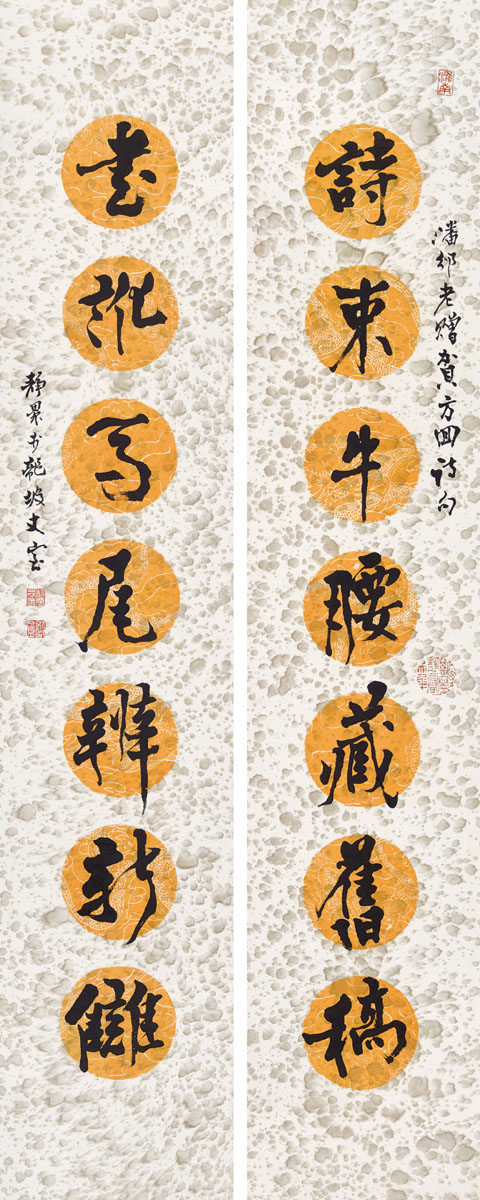 潘邠老贈賀方回詩句
詩束牛腰藏舊稿
書訛馬尾辨新讎
靜農於龍坡丈室